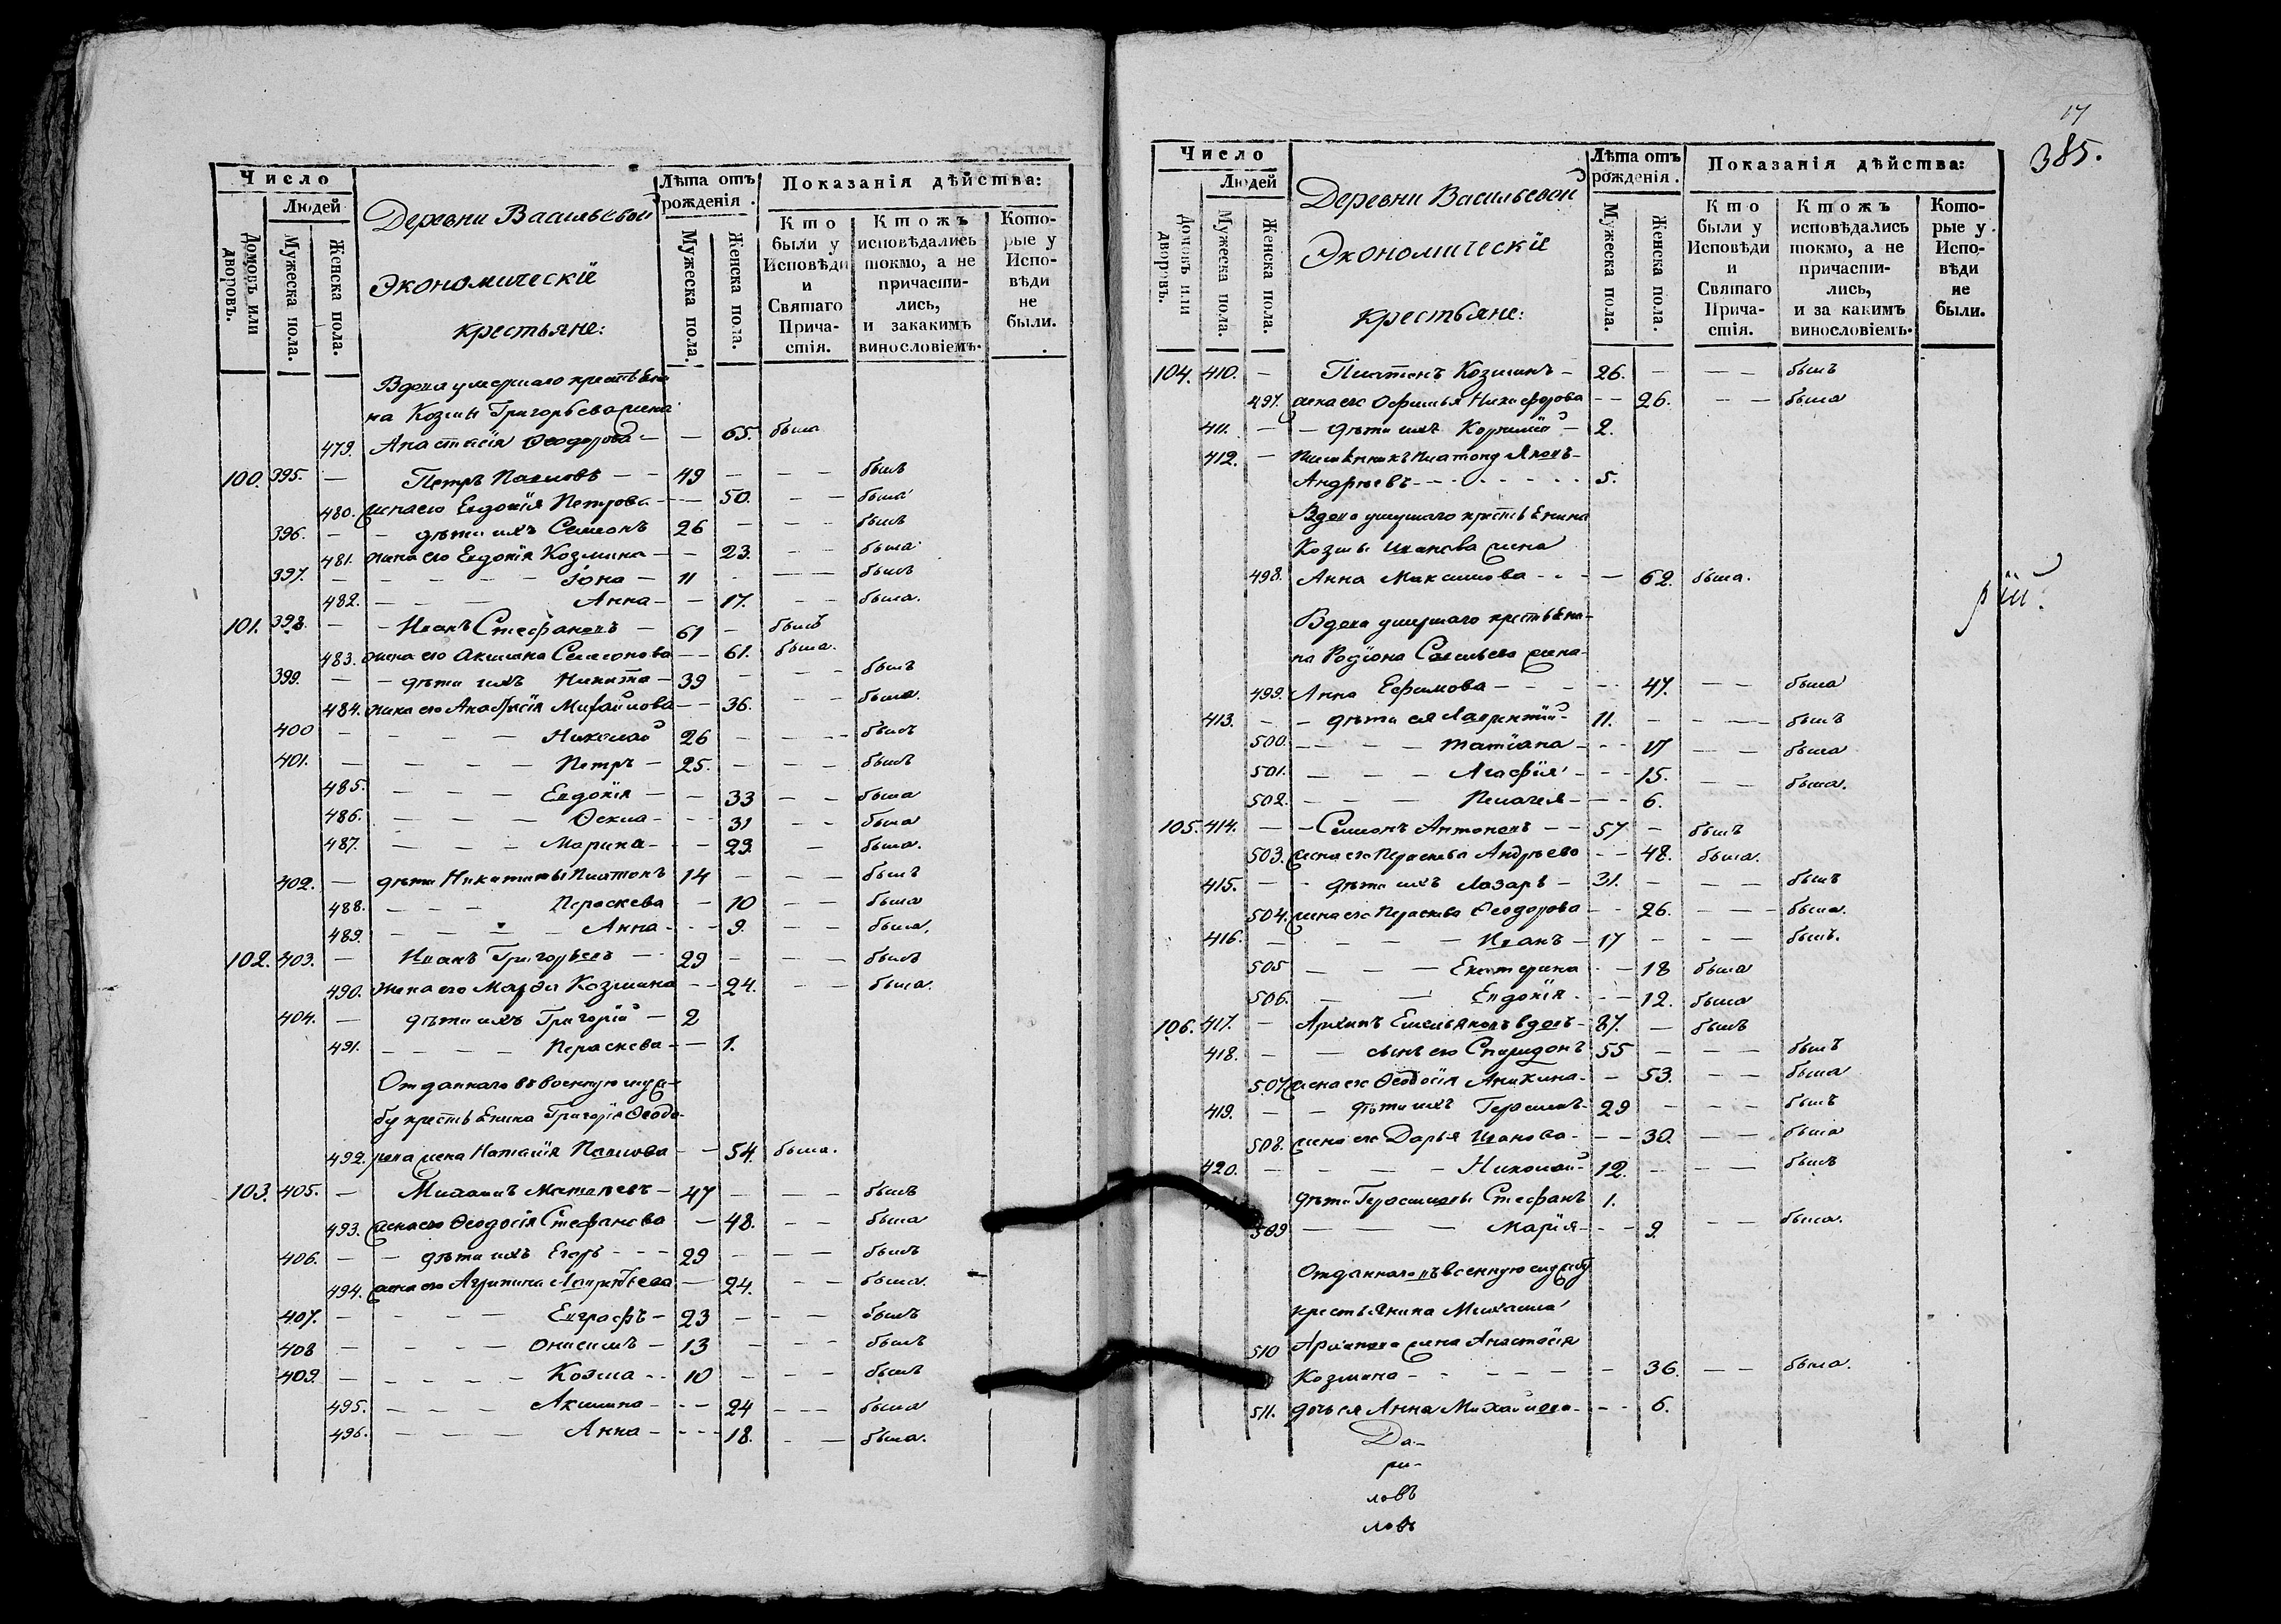 Число
Людей
Домовъ или дворовъ.
Мужеска пола.
Женска пола.
Деревни Васильевой
Экономическіе
крестьяне:
Лѣта отъ рожденія.
Мужеска пола.
Женска пола.
Показанія дѣйства:
Кто были у Исповѣди и Святаго Причастія.
Ктожъ исповѣдались токмо, а не причастились, и закакимъ винословіемъ.
Которые у Исповѣди не были.
Вдова умершаго крестьяни-
на Козмы Григорьева жена
479. Анастасія Ѳеодорова — — 65. была
100. 395. — Петръ Павловъ — — 49 — — — былъ
480. жена его Евдокія Петрова — — 50. — — была
396. — — дѣти ихъ Семенъ 26 — — — былъ
481. жена его Евдокія Козмина — — 23. — — была
397. — — — — — Іона — 11 — — — былъ
482. — — — Анна — — 17. — — была.
101. 398. — — Иванъ Стефановъ — 61 — былъ
483. жена его Акилина Семенова — — 61. была.
399. — — дѣти ихъ Никита — 39 — — — былъ
484. жена его Анастасія Михайлова — — 36. — — была.
400 — — — — Николай 26 — — — былъ
401. — — — — Петръ — 25. — — — былъ
485. — — — Евдокія — — 33 — — была
486. — — — Ѳекла — — 31 — — была
487. — — — Марина — — 29. — была.
402. — дѣти Никитины Платонъ 14 — — — былъ
488. — — — Параскева — — 10 — — была
489. — — — — Анна — — 9. — — была.
102. 403. — Иванъ Григорьевъ — — 29 — — — былъ
490. жена его Марѳа Козмина — — 24. — — была.
404. — дѣти ихъ Григорій — 2
491. — — — — Параскева — — 1.
Отданнаго въ военную служ-
бу крестьянина Григорія Ѳеодо-
492. рова жена Наталія Павлова — — 54. была.
103. 405. — Михаилъ Матвѣевъ — 47 — — — былъ
493. жена его Ѳеодосія Стефанова — 48. — — была
406. — — дѣти ихъ Егоръ — — — 29 — — — былъ
494. жена его Агрипина Лаврентьева — 24. — — была.
407. — — — — Евграфъ — 23 — — — былъ
408 — — — — Онисимъ — 13 — — — былъ
409. — — — — — Козма — — 10 — — — былъ
495. — — — Акилина — — — 24 — — — была
496. — — — — Анна — — — 18. — — была.
17
385.
Число
Людей
Домовъ или дворовъ.
Мужеска пола.
Женска пола.
Деревни Васильевой
Экономическіе
крестьяне:
Лѣта отъ рожденія.
Мужеска пола.
Женска пола.
Показанія дѣйства:
Кто были у Исповѣди и Святаго Причастія.
Ктожъ исповѣдались токмо, а не причастились, и за какимъ винословіемъ.
Которые у Исповѣди не были.
104. 410. — Платонъ Козминъ — 26. — — — былъ
497. жена его Офимья Никифорова — — 26. — — была
411. — — дѣти ихъ Корнилій — 2.
412. — Племянникъ Платону Яковъ —
Андреевъ — — — — — — 5.
Вдова умершаго крестьянина
Козмы Иванова жена
498. Анна Максимова — — — 62. была.
Вдова умершаго крестьяни-
на Родіона Савельева жена
499. Анна Ефимова — — — — 47. — — была
413. — — дѣти ея Лаврентій — 11. — — — былъ
500. — — — — Татіана — — — 17 — — была
501. — — — Агафія — — — 15. — — была.
502. — — — Пелагея — — — 6.
105. 414. — — Семенъ Антоновъ — — 57 — былъ
503. жена его Параскева Андреева — — 48. была.
415. — — дѣти ихъ Лазарь — 31. — — — былъ
504. жена его Параскева Ѳеодорова — — 26. — — — была.
416. — — — — Иванъ — 17 — — — былъ.
505 — — — Екатерина — — 18 была
506. — — Евдокія — — — 12. была
106. 417. — Архипъ Емельяновъ вдовъ — 87. — былъ
418. — — сынъ его Спиридонъ 55 — — — былъ
507. жена его Ѳеодосія Аникина — — 53. — — была
419. — — дѣти ихъ Герасимъ — 29 — — — былъ
508. жена его Дарья Иванова — — — 30. — — была
420. — — — — Николай — 12. — — — былъ
дѣти Герасимовы Стефанъ 1.
509 — — — Марія — — — 9. — — была.
Отданнаго въ военную службу
крестьянина Михаила
510 Архипова жена Анастасія
Козмина — — — — — — 36. — — была.
511. дочь ея Анна Михайлова — — — 6.